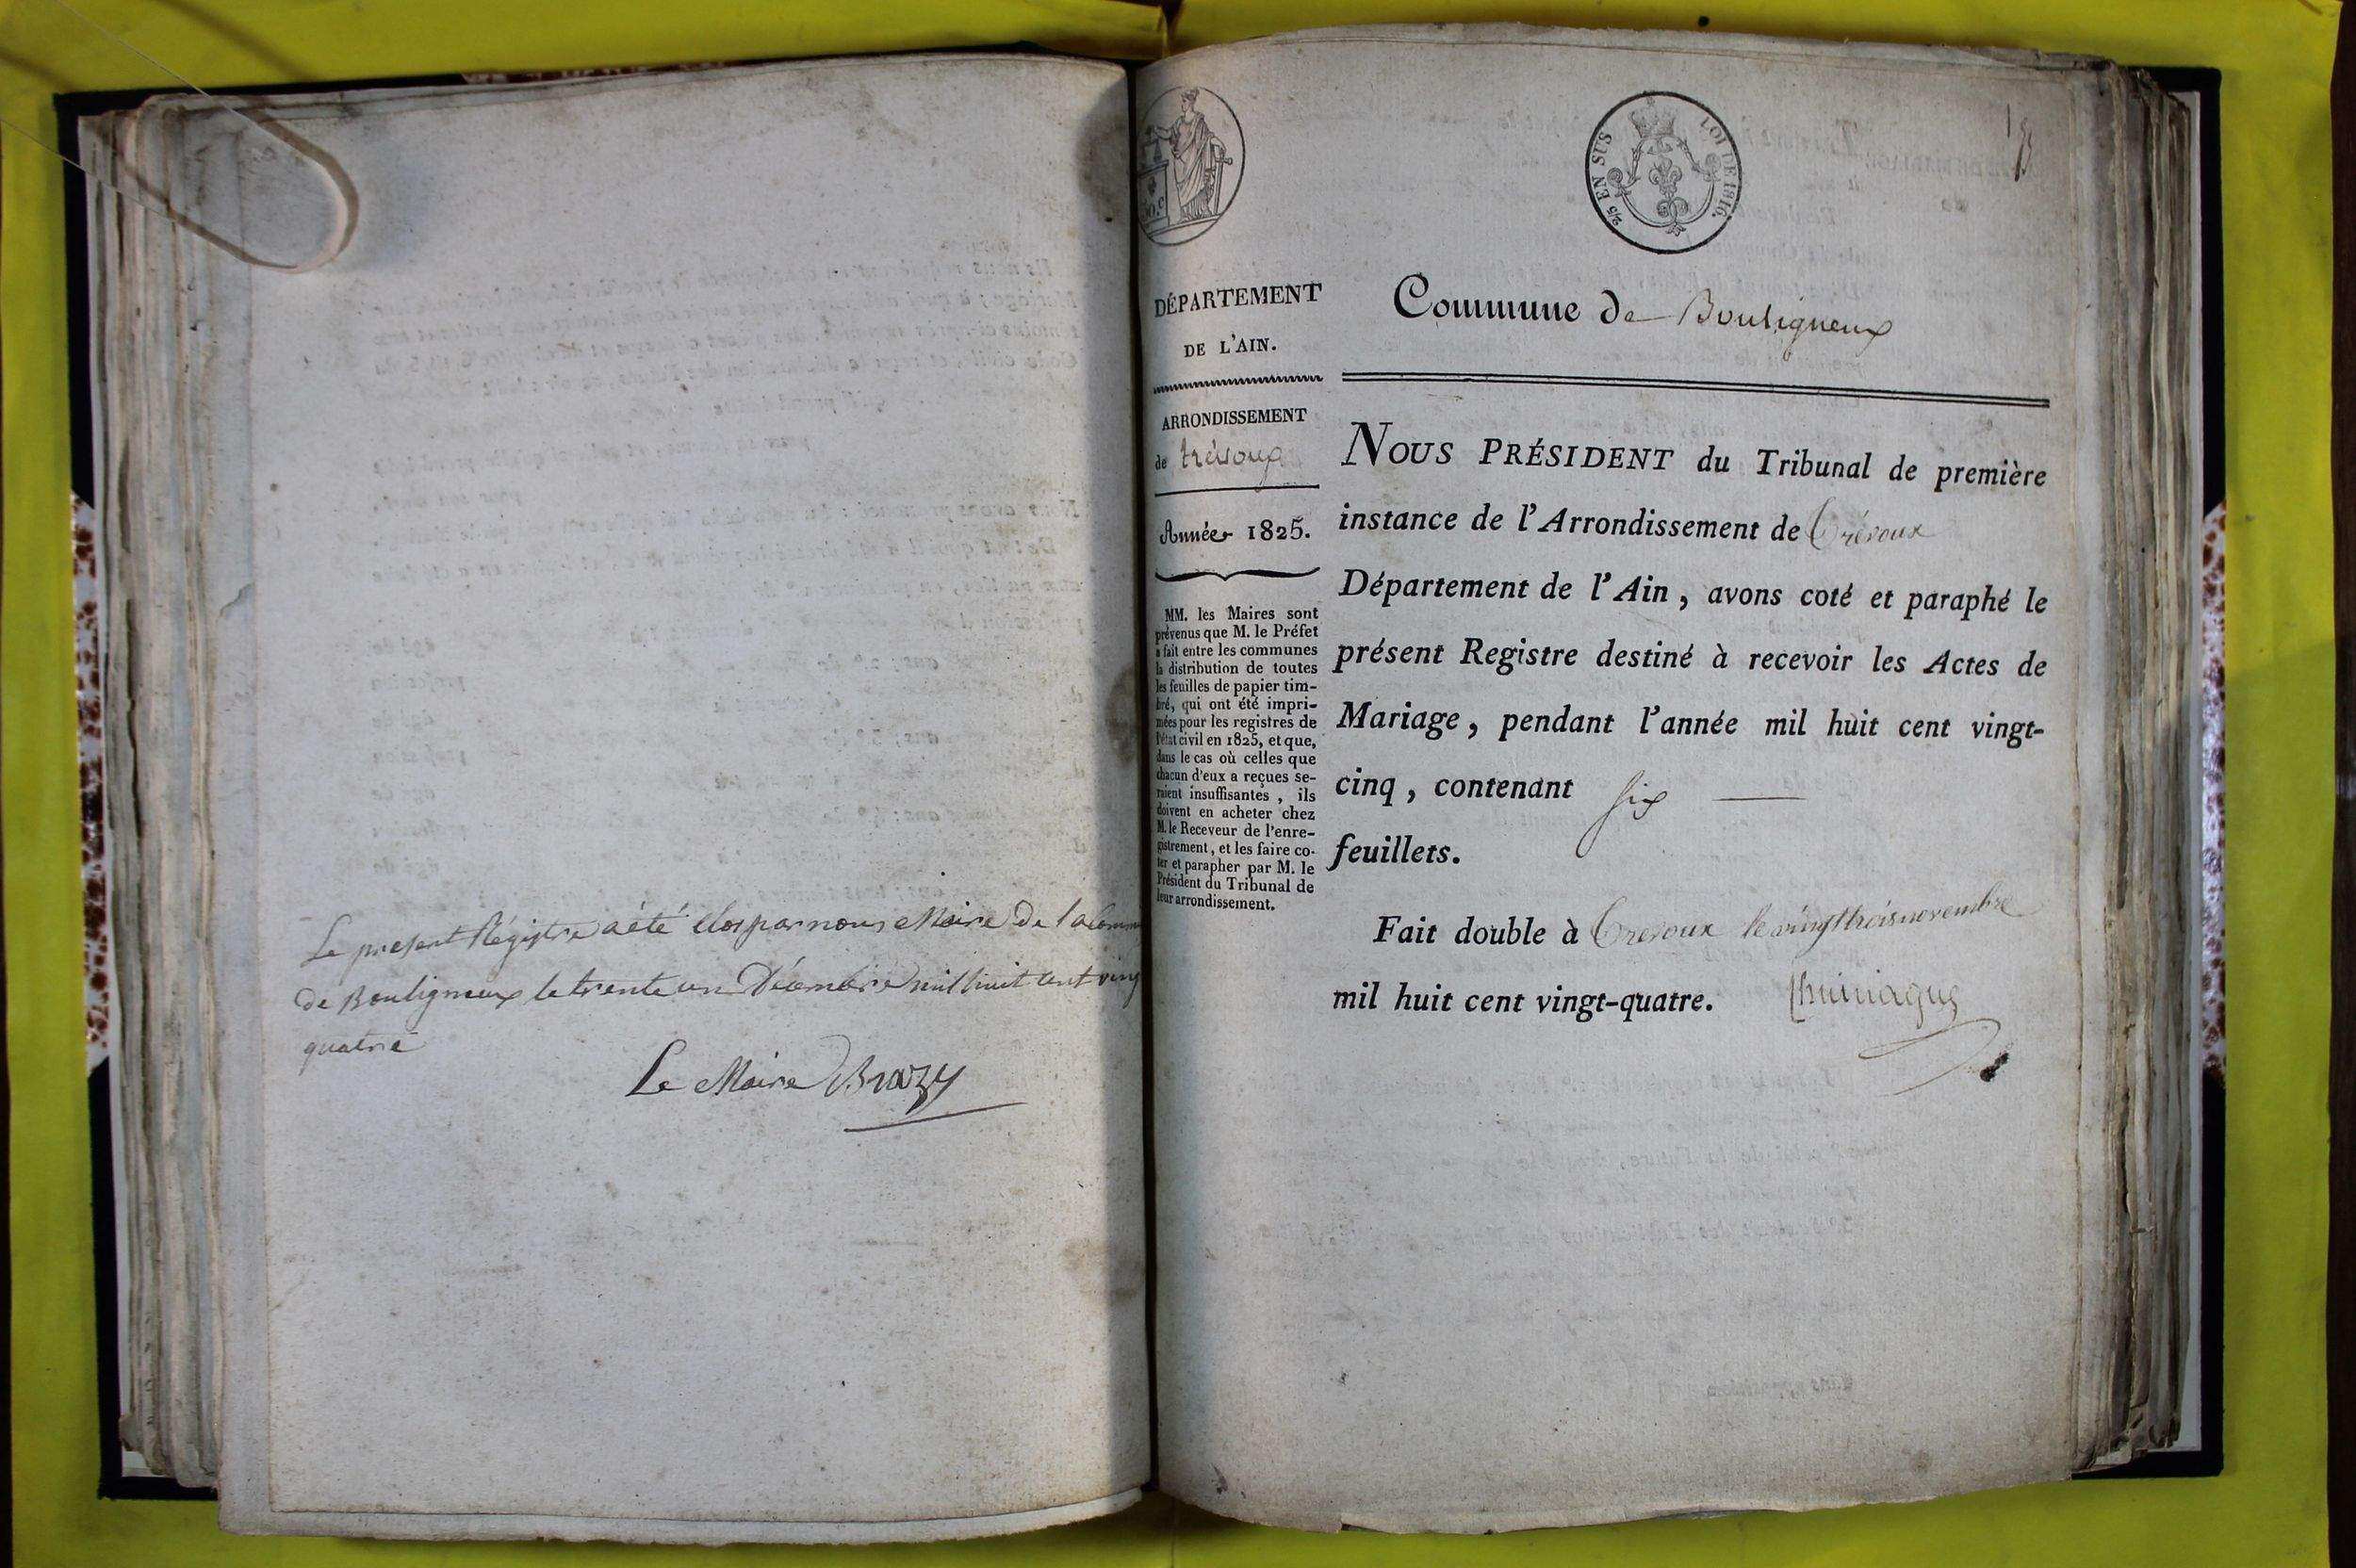 Le present Régistre a été clos par nous Maire De la Comm
de Bouligneux le trente un Décembre mil huit cent ving
quatre
Le Maire Brazy
50.c
2/5 EN SUS
LOI DE 1816.
1
DÉPARTEMENT
DE L'AIN.
ARRONDISSEMENT
de trévoux
Année 1825.
MM. les Maires sont
prévenus que M. le Préfet
a fait entre les communes
la distribution de toutes
les feuilles de papier tim-
bré, qui ont été impri-
mées pour les registres de
l'état civil en 1825, et que,
dans le cas où celles que
chacun d'eux a reçues se-
raient insuffisantes, ils
doivent en acheter chez
M. le Receveur de l'enre-
gistrement, et les faire co-
ter et parapher par M. le
Président du Tribunal de
leur arrondissement.
Commune de Bouligneux
NOUS PRÉSIDENT du Tribunal de première
instance de l'Arrondissement de Trévoux
Département de l'Ain, avons coté et paraphé le
présent Registre destiné à recevoir les Actes de
Mariage, pendant l'année mil huit cent vingt-
cinq, contenant six
feuillets.
Fait double à Trevoux le vingt trois novembre
mil huit cent vingt-quatre.